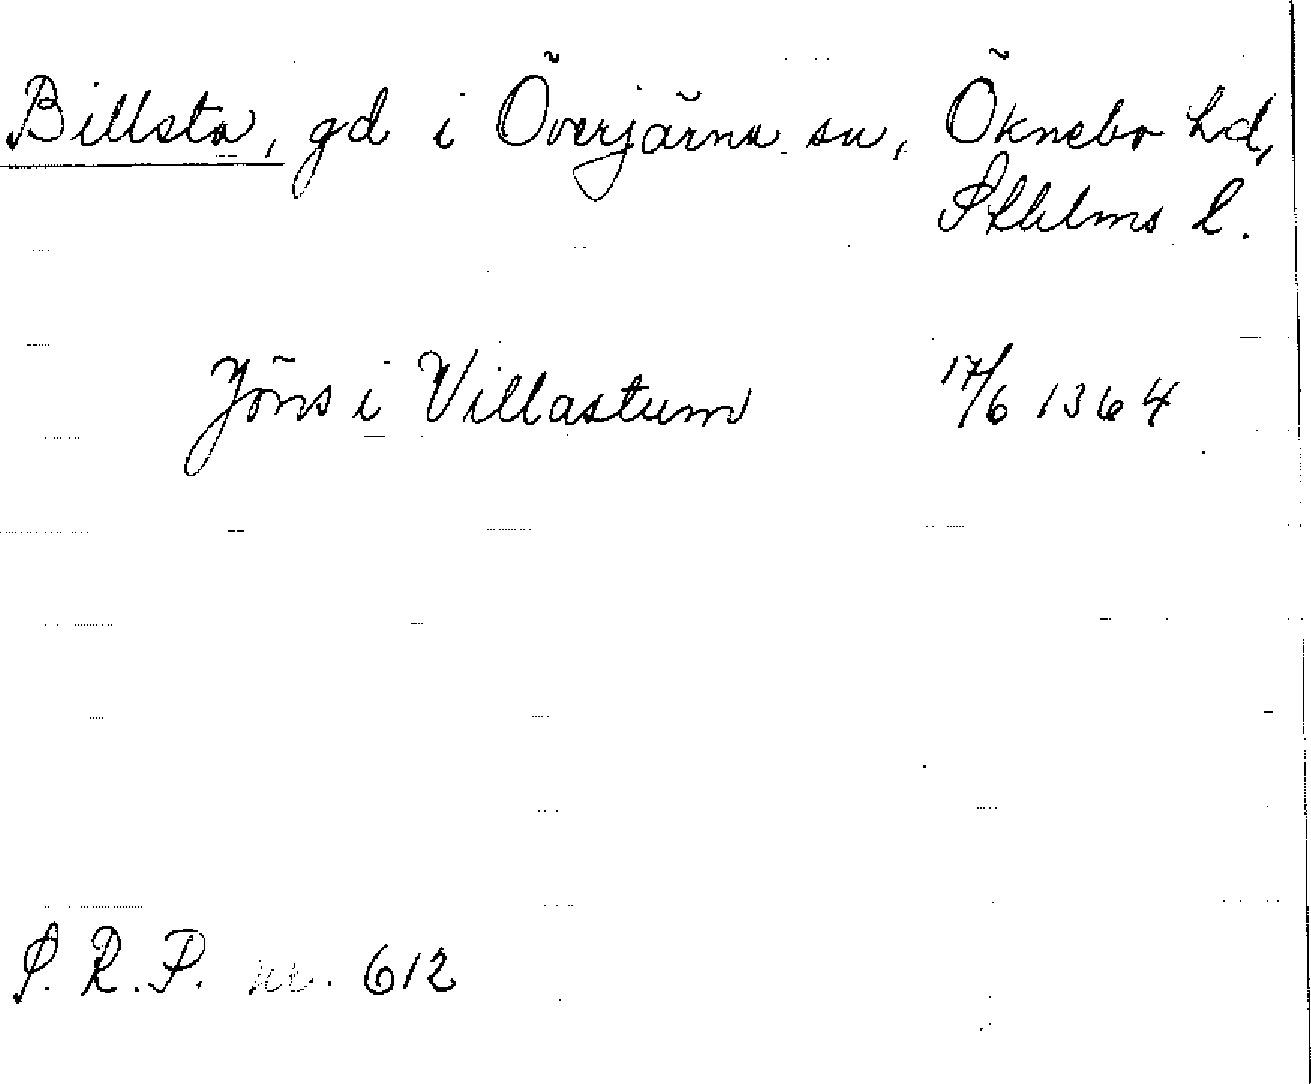 Billsta, gd i Överjärna sn, Öknebo hd,
Sthlms l.
Jöns i Villastum 17/6 1364
S. R. P. nr. 612